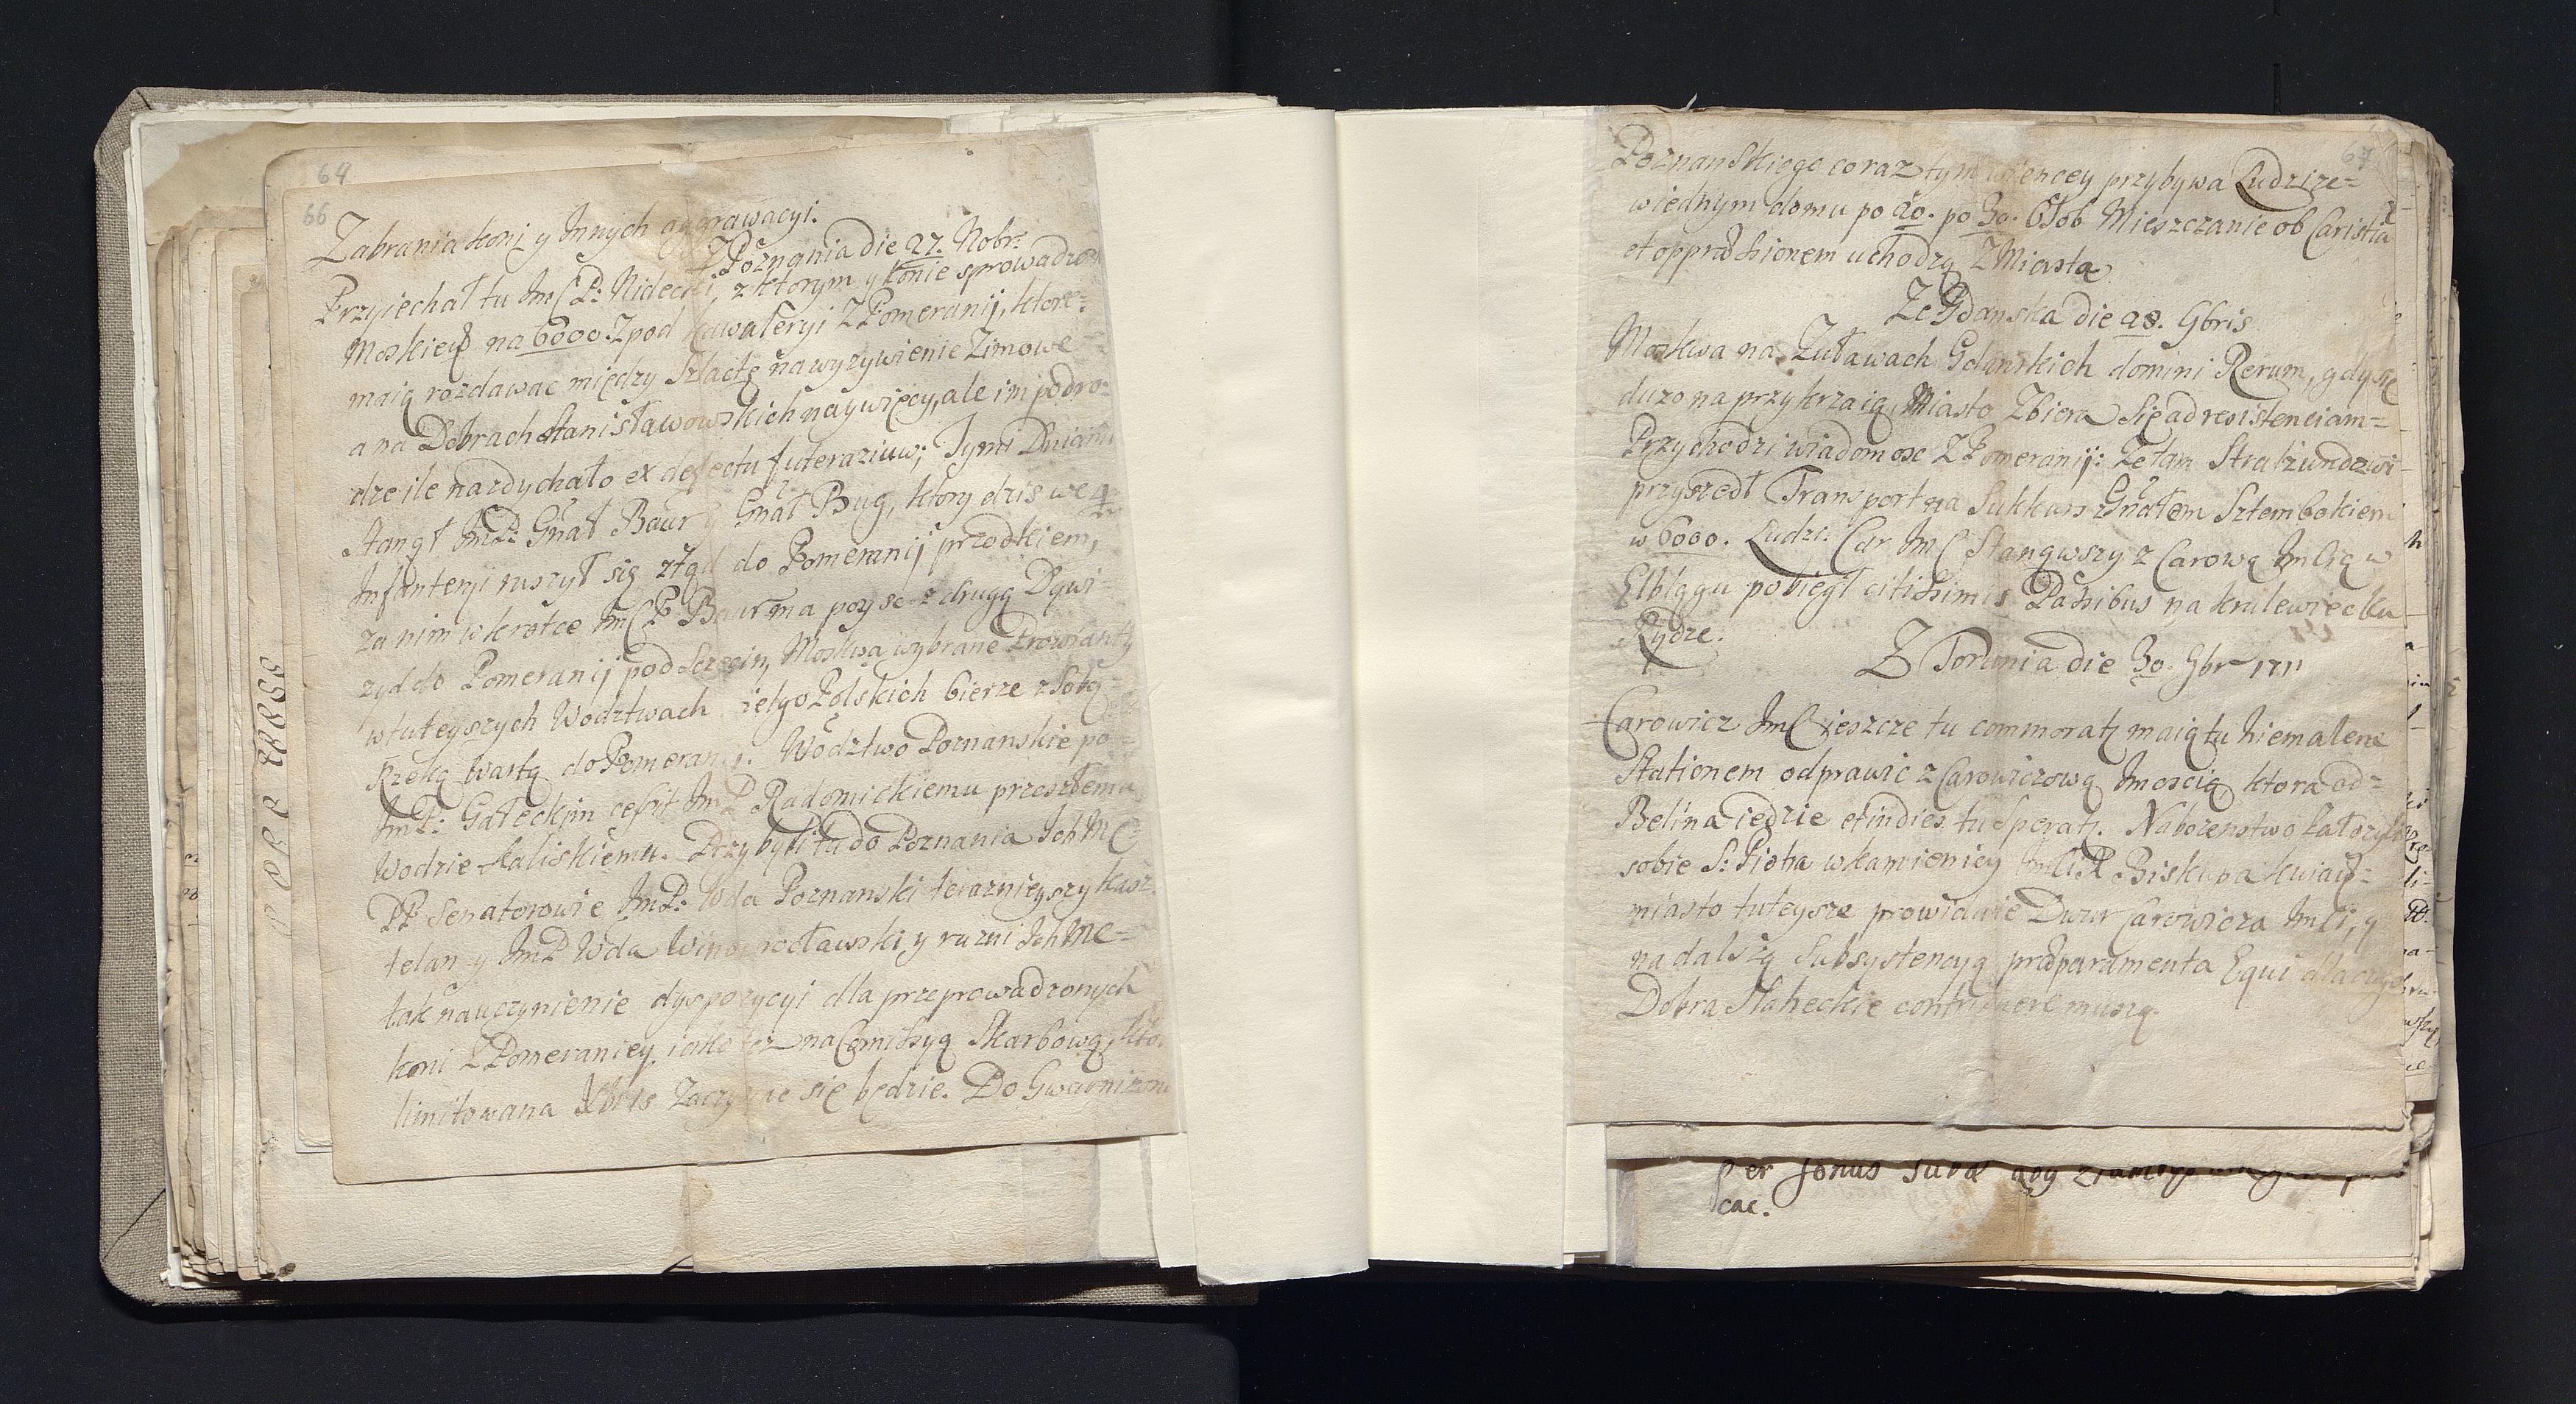 64
66
Zabrania koni y Innych aggrawacyi.
Z Poznania die 27. Nobr:
Przyiechał tu Im C P: Nidecki, z ktorym y konie sprowadzon
Moskiew na 6000. z pod kawaleryi Z Pomeranij, ktore-
maią rozdawac między Szlachtę na wyzywienie Zimowe
a na Dobrach Stanisławowskich naywięcy, ale im podro-
dze ile nazdychało ex defectu futeraziuw; Tymi Dniami
Stanął ImP: Gnał Baur y Gnał Bug, ktory dzis we 4
Infanterji ruszył się ztąd do Pomeranij przodkiem,
za nim wkrotce Im C P Baur ma poysc z drugą Dywi-
zyd do Pomeranij pod Szczecin, Moskwa wybrane Prowianty
w tuteyszych Wodztwach ielgo Polskich bierze z sobą
Rzeką Wartą do Pomeranij. Wodztwo Poznanskie po
Im P: Gałeckim cessit Im P Radomickiemu przeszłemu
Wodzie Kaliskiemu. Przybyli tu do Poznania Ich MC
PP Senatorowie ImP: Wda Poznanski teraznieyszy kasz
telan y ImP Wda Winowrocławski y ruzni Ich MC-
tak na uczynienie dyspozycyi dla przeprowadzonych
koni z Pomeraniey iako tez na Comissyą Skarbową, kto
limitowana Xbris Zaczynac się będzie. Do Gwarnizonu
67
Poznanskiego coraz tym wiencey przybywa Ludzi ze-
w iednym domu po 20. po 30. Osob Mieszczanie ob Caristiā
et oppræssionem uchodzą z Miasta.
Ze Gdanska die 28. 9bris
Moskwa na Zuławach Gdanskich domini Rerum, gdy się
duzo naprzykrzaią, Miasto Zbiera Się ad resistenciam-
Przychodzi wiadomosc Z Pomeranij: Ze tam Stralzundowi
przyszedł Transport na Sukkurs z Gnałem Sztembokiem
w 6000. Ludzi. Car Im C Stanąwszy z Carową ImCią w
Elblągu pobiegł citissimis Passibus na Krulewiec ku
Rydze.
Z Torunia die 30. 9br 1711
Carowicz ImC ieszcze tu commoratz maią tu hiemalene
Stationem odprawic z Carowiczową Imoscią, ktora od-
Belina iedzie et indies tu speratz. Nabozenstwo założyli
sobie S: Piotra w kamienicy ImCi X Biskupa kuiaw-
miasto tuteysze prowiduie Dwur Carowicza ImCi, y
na dalszą Subsystencyą præparamenta Equi dla czego
Dobra Slaheckie contribuere muszą.
per sonus suæ
cac.